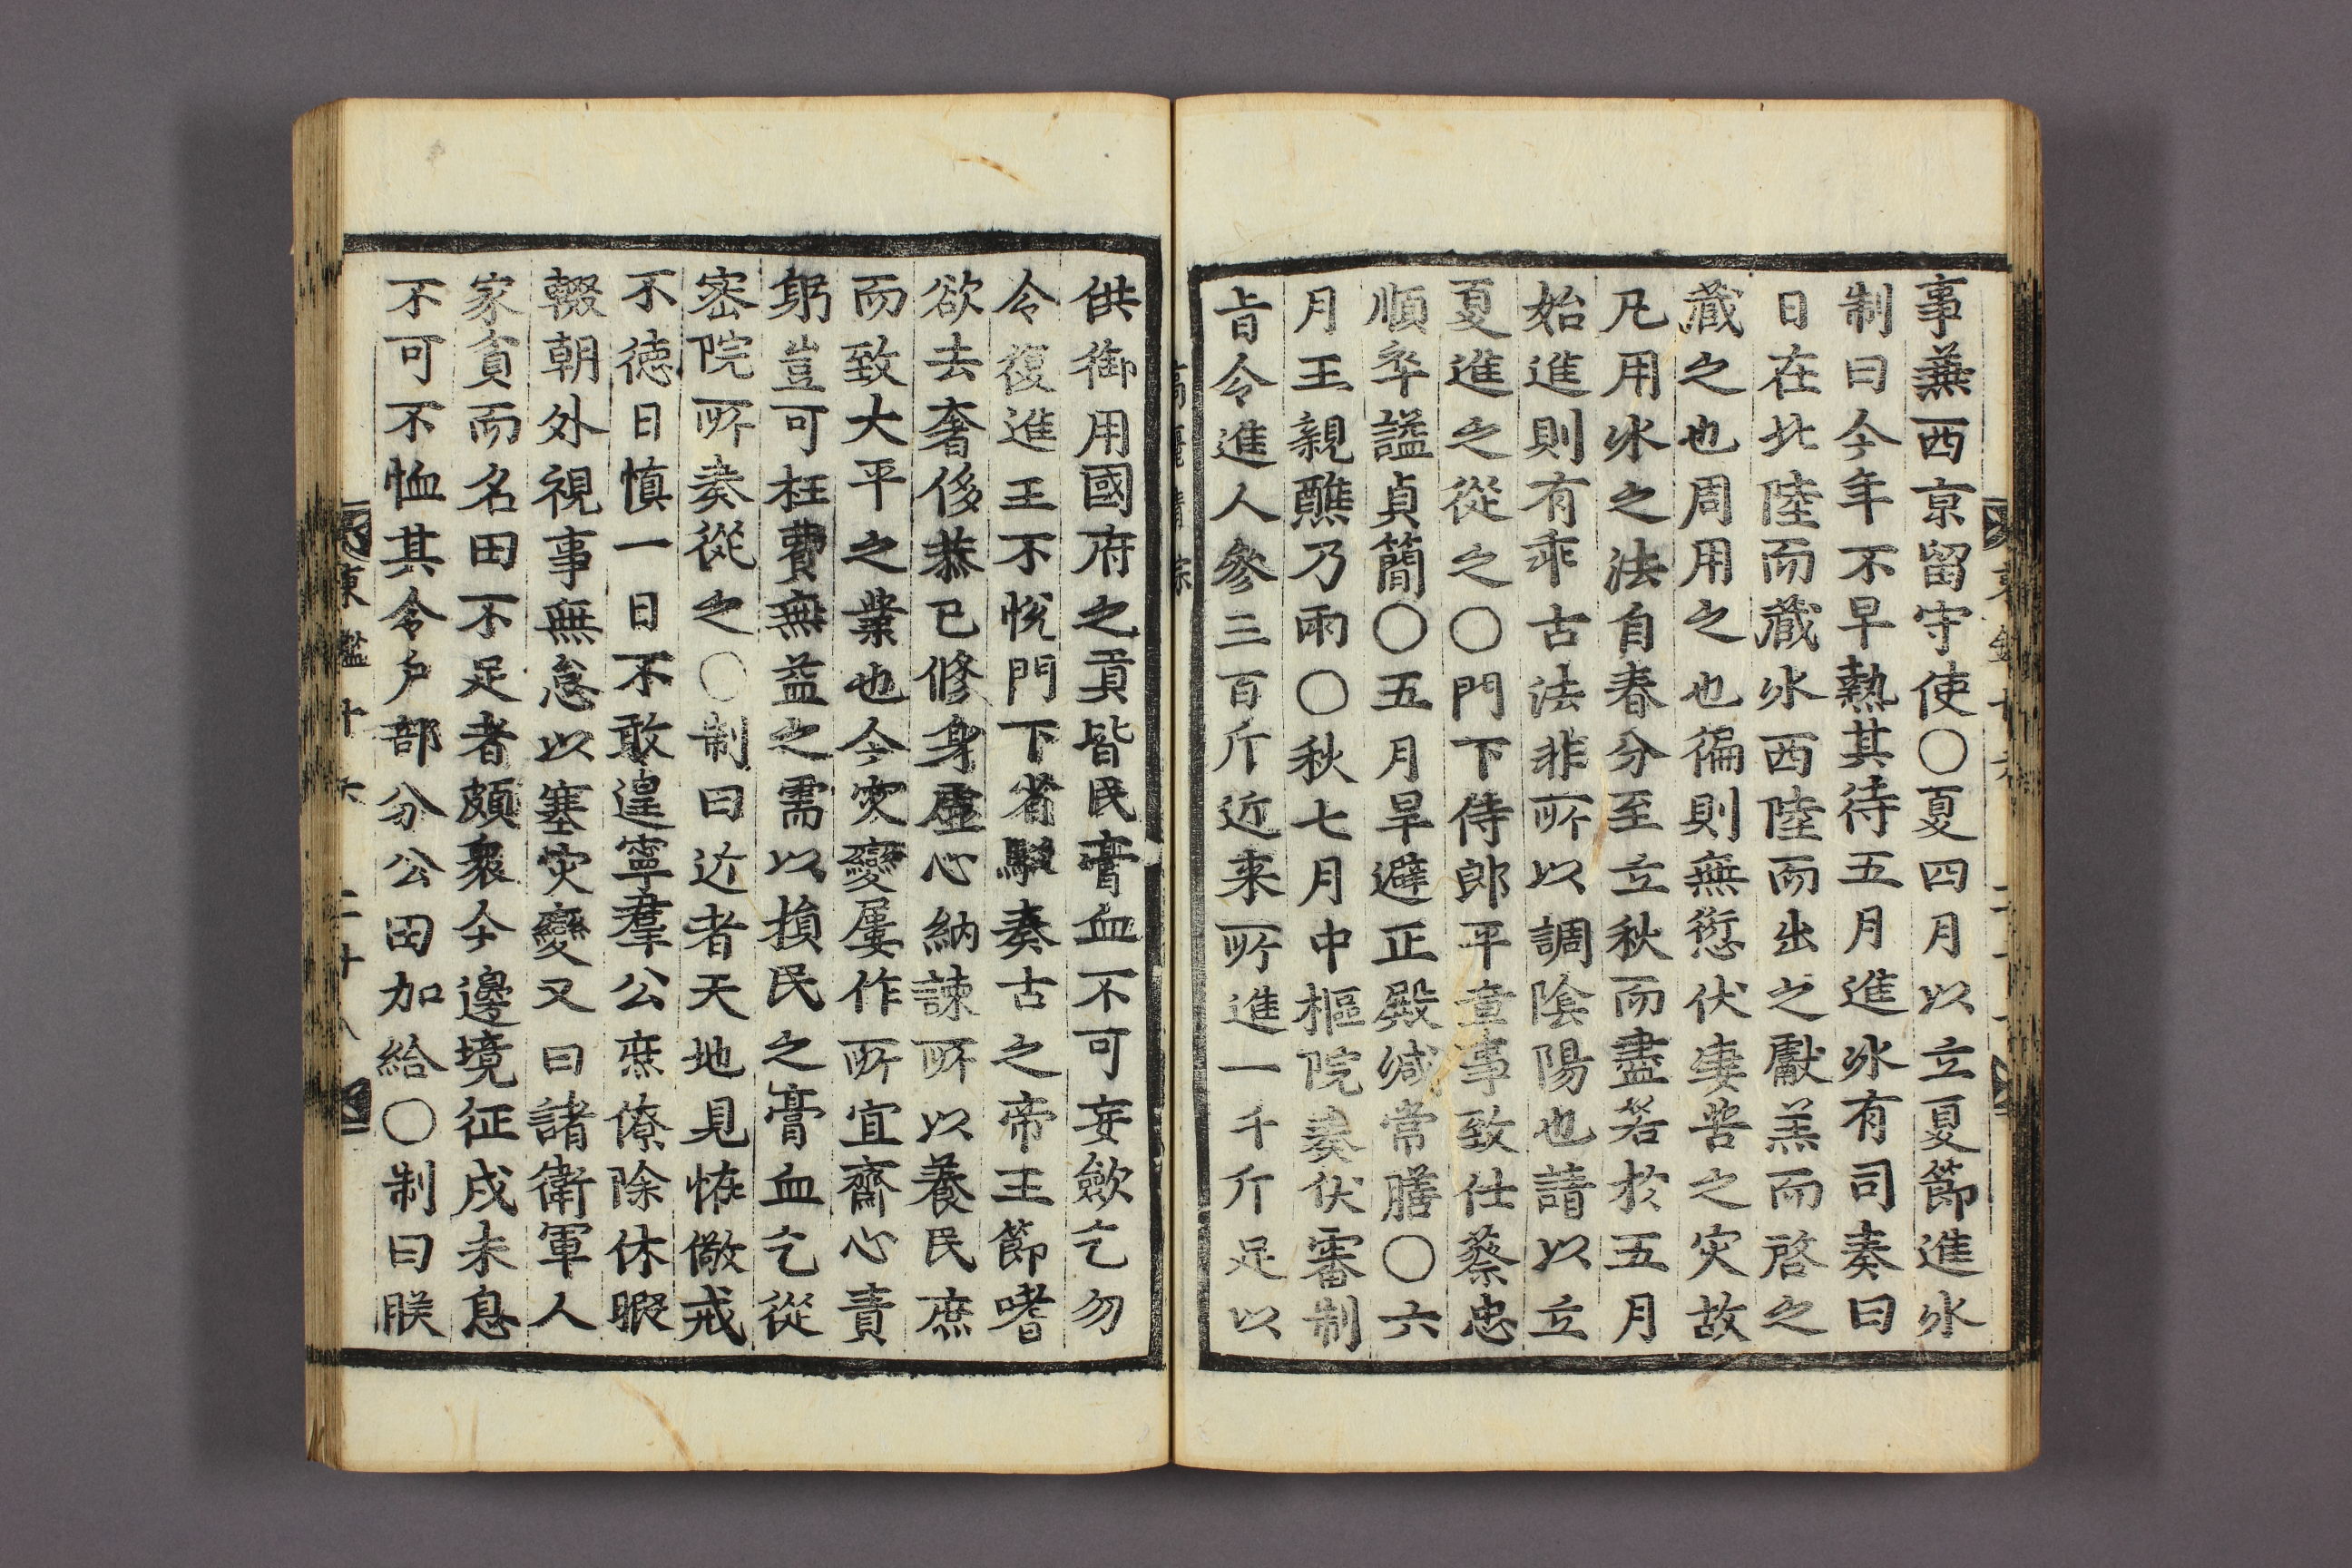 事蒹西京留守使〇夏四月以立夏節進氷
制曰今年不早熱其待五月進氷有司奏曰
日在北陸而藏氷西陸而出之獻羔而啓之
藏之也周用之也徧則無愆伏凄苦之灾故
凡用氷之法自春分至立秋而盡若於五月
始進則有乖古法非所以調陰陽也請以立
夏進之從之〇門下侍郎平章事致仕蔡忠
順卒謚貞簡〇五月旱避正殿减常膳〇六
月王親醮乃雨〇秋七月中樞院奏伏審制
旨令進人參三百斤近来所進一千斤足以
供御用國府之貢皆民膏血不可妄歛乞勿
令復進王不悅門下省駁奏古之帝王節嗜
欲去奢侈恭已修身虛心納諫所以養民庶
而致大平之業也今灾變屢作所宜齋心責
躬豈可枉費無益之需以損民之膏血乞從
密院所奏從之〇制曰近者天地見恠儆戒
不德日愼一日不敢遑寧羣公庶僚除休暇
輟朝外視事無怠以塞灾變又曰諸衛軍人
家貧而名田不足者頗衆今邊境征戍未息
不可不恤其令户部分公田加給〇制曰朕
東鑑十六 二十八